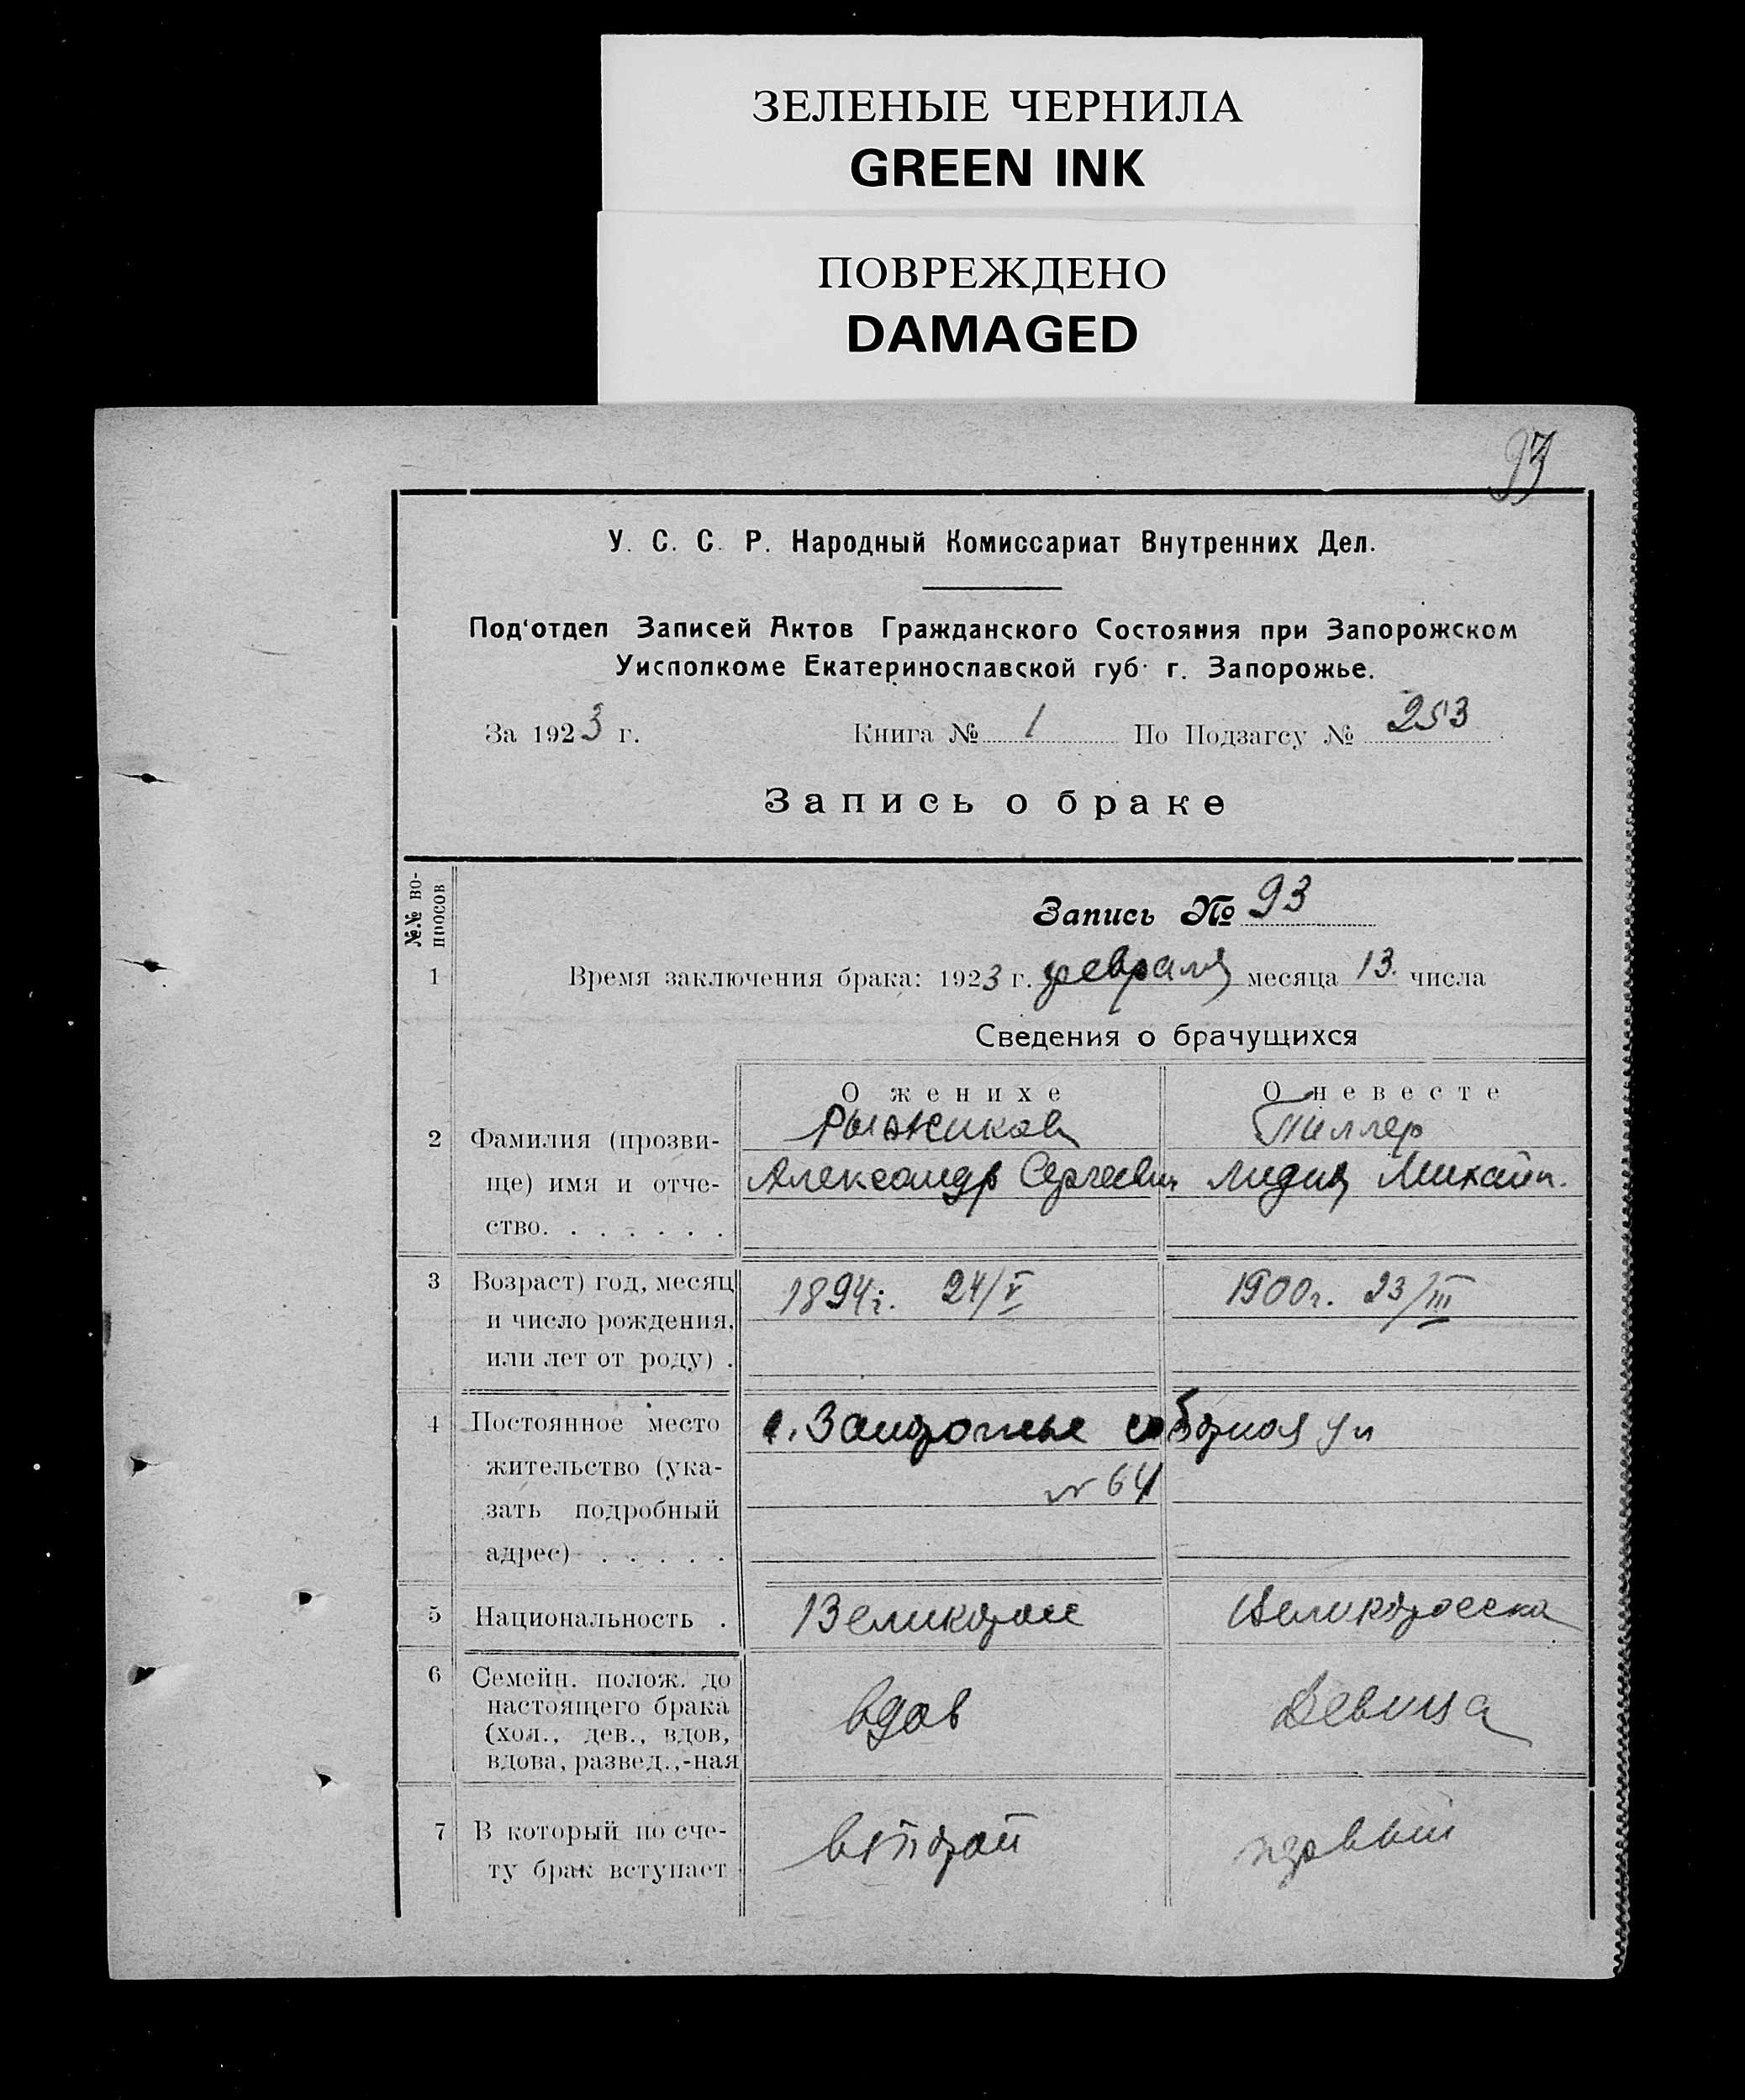 ЗЕЛЕНЫЕ ЧЕРНИЛА
GREEN INK
ПОВРЕЖДЕНО
DAMAGED
93
У. С. С. Р. Народный Комиссариат Внутренних Дел.
Под‘отдел Записей Актов Гражданского Состояния при Запорожском
Уисполкоме Екатеринославской губ. г. Запорожье.
За 1923 г. Книга № 1 По Подзагсу № 253
Запись о браке
№.№ во-
просов
Запись № 93
1 Время заключения брака: 1923 г. февраля месяца 13. числа
Сведения о брачущихся
О женихе О невесте
Рыжиков Миллер
2 Фамилия (прозви-
ще) имя и отче- Александр Сергеевич Лидия Михайл.
ство. . . . . . .
3 Возраст) год, месяц 1894г. 24/V 1900г. 23/III
и число рождения,
или лет от роду) .
4 Постоянное место г. Запорожье соборная ул
жительство (ука-
№ 64
зать подробный
адрес) . . . . .
5 Национальность . Великорос Великоросска
6 Семейн. полож. до
настоящего брака вдов Девица
(хол., дев., вдов,
вдова, развед.,-ная
7 В который по сче- второй первый
ту брак вступает